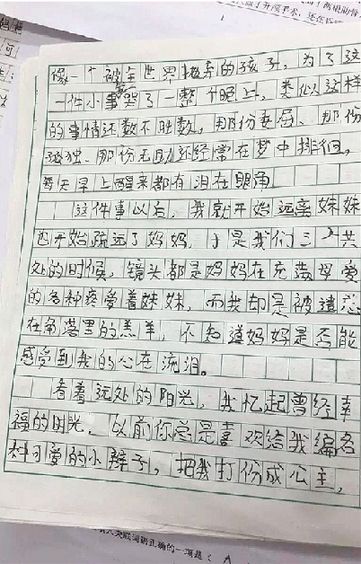 像一个被全世界抛弃的孩子，为了这
一件小事哭了一整个晚上，类似这样
的事情还数不胜数，那份委屈、那份
孤独、那份无助还经常在梦中徘徊，
每天早上醒来都有泪在眼角。
这件事以后，我就开始远离妹妹
也开始疏远了妈妈，于是我们三个共
处的时候，镜头都是妈妈在充满母爱
的各种疼爱着妹妹，而我却是被遗忘
在角落里的羔羊，不知道妈妈是否能
感受到我的心在流泪。
看着远处的阳光，我忆起曾经幸
福的时光，以前你总是喜欢给我编各
种可爱的小辫子，把我打份成公主，
正确的一项是（ A